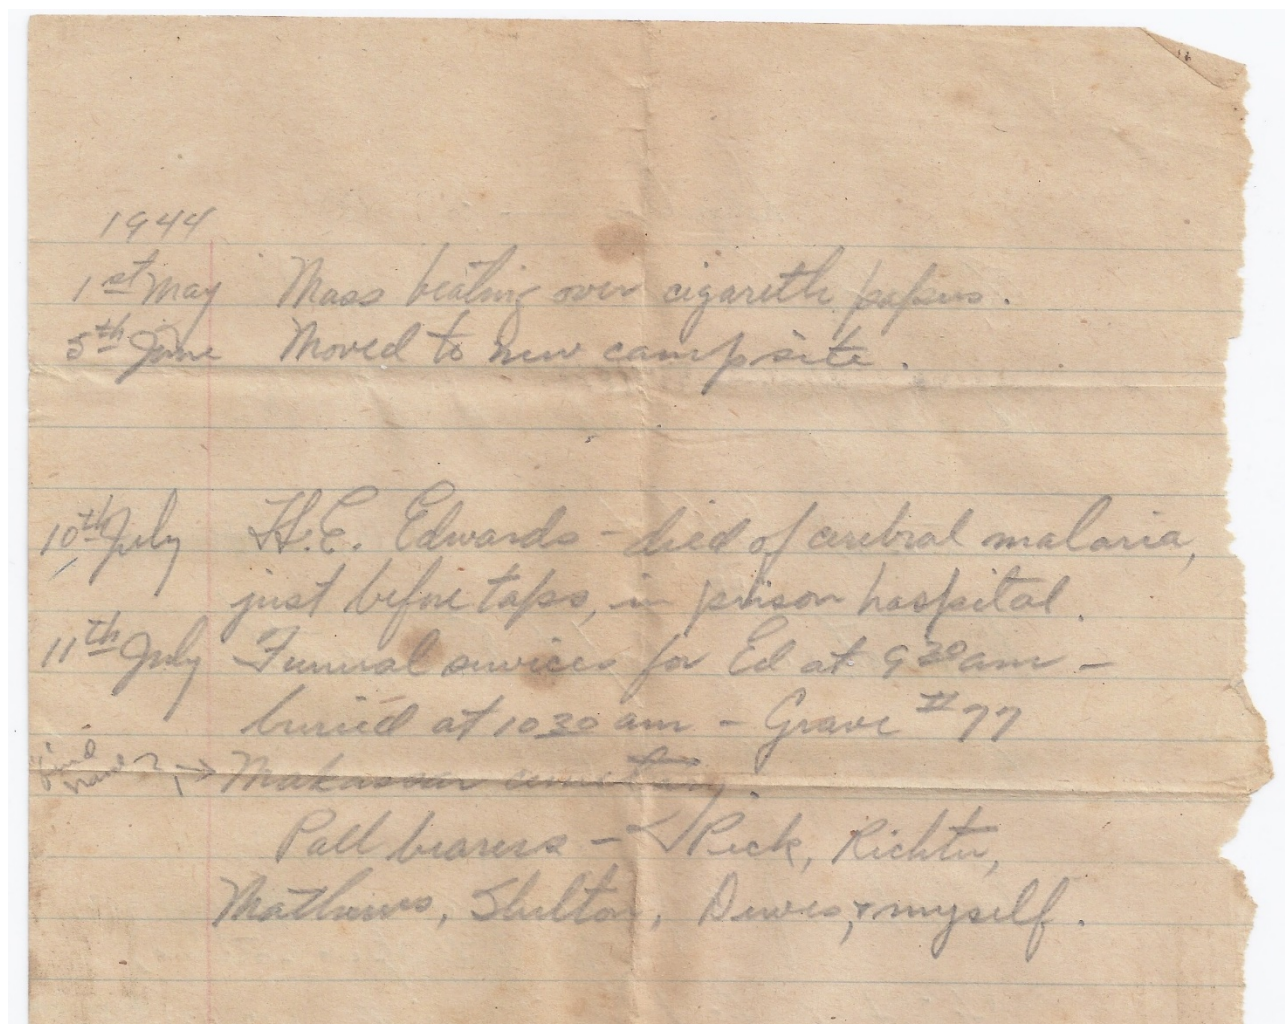 1944
1st May Mass beating over cigarette papers.
5th June Moved to new camp site.
10th July H.E. Edwards - died of cerebral malaria,
just before taps, in prison hospital.
11th July Funeral services for Ed at 930 am -
buried at 1030 am - Grave #77
→ Makassar cemetery
Pall bearers - Peck, Richter,
Mathews, Shelton, Dewes, & myself.